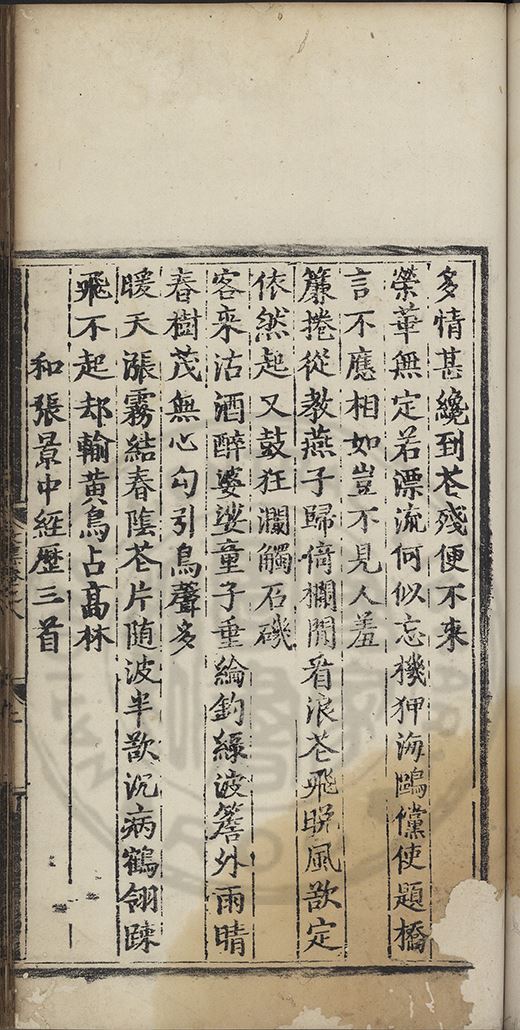 多情甚纔到芲殘便不來
榮華無定若漂流何似忘機狎海鷗儻使題橋
言不應相如豈不見人羞
簾捲從教燕子歸倚欄閒看浪芲飛晚風欲定
依然起又鼓狂瀾觸石磯
客來沽酒醉婆娑童子垂綸釣綠波簷外雨晴
春樹茂無心勾引鳥聲多
暖天漲霧結春陰芲片随波半欲沉病鶴翎踈
飛不起却輸黄鳥占髙林
和張景中經歴三首